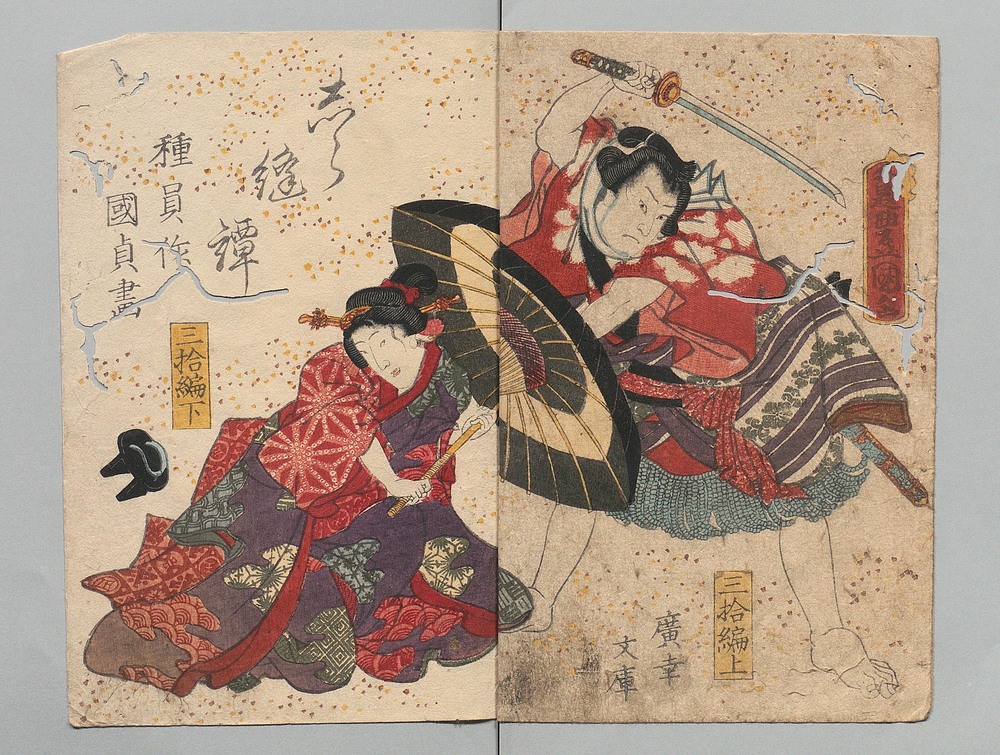 廣幸
文庫
三拾編上
しらぬ
縫
譚
種員作
國貞畫
三拾編下